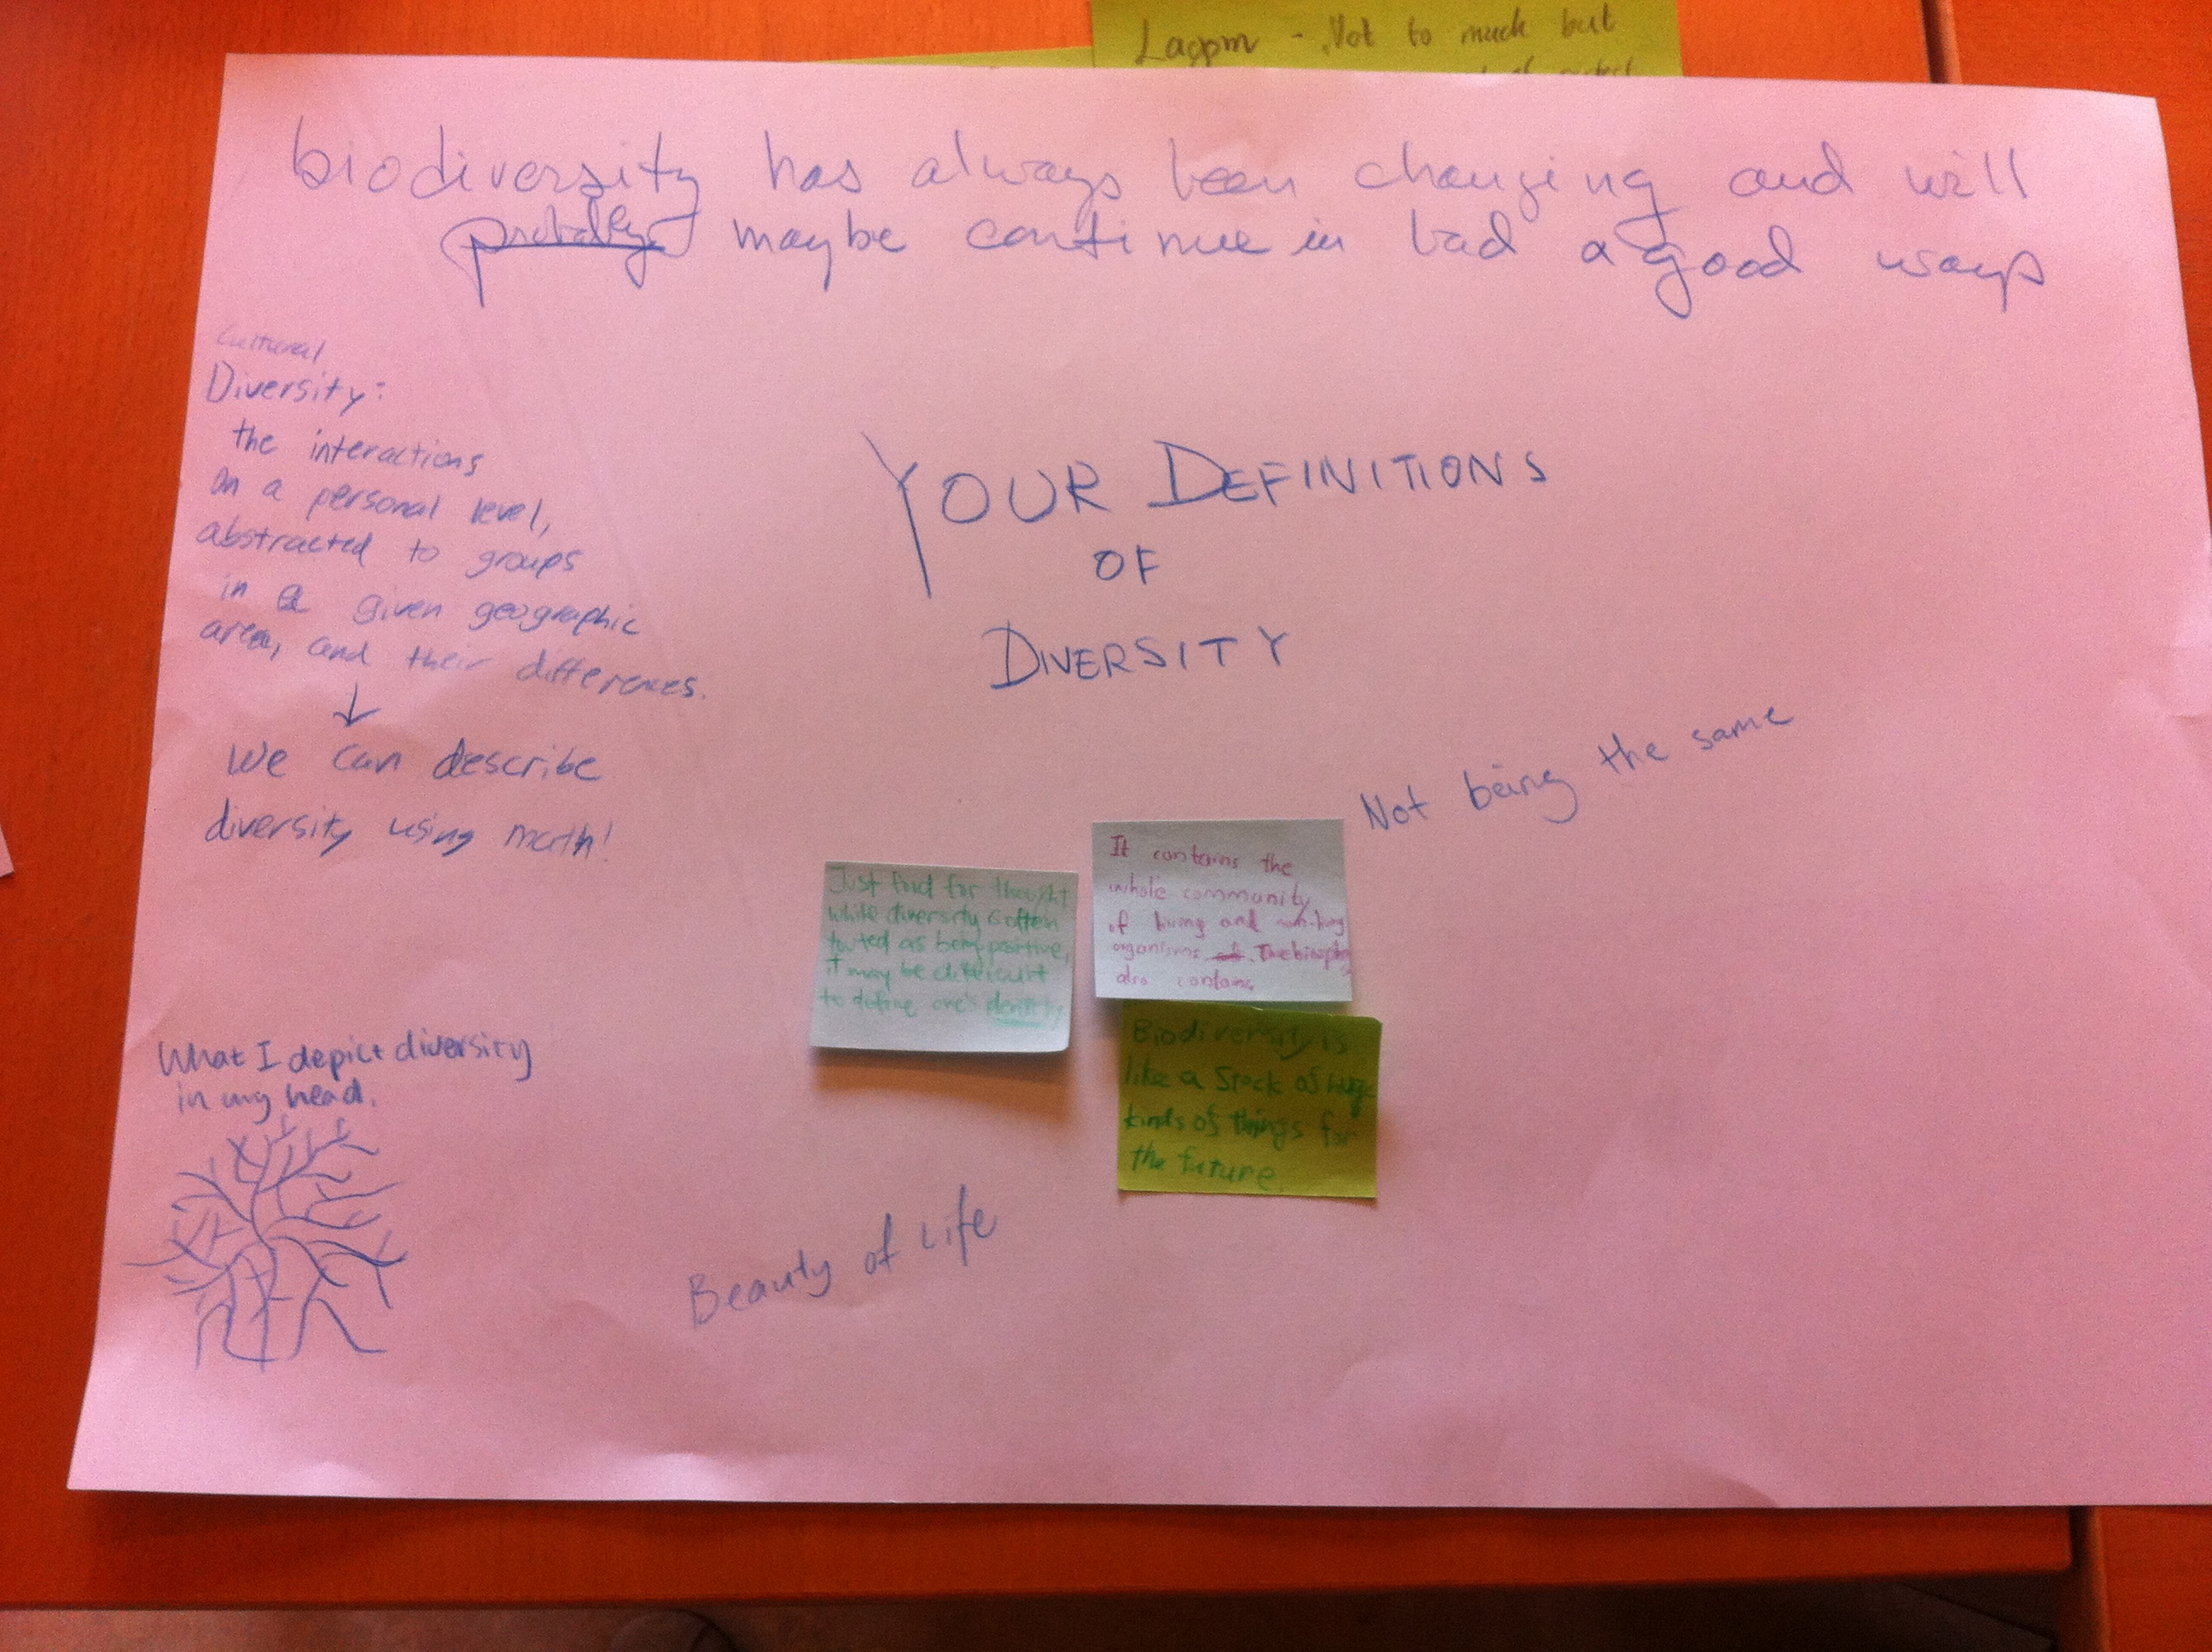 Lagom - Not to much but
biodiversity has always been changing and will
probably maybe continue in bad a good ways
Cultural
Diversity:
the interactions
on a personal level,
abstracted to groups
in a given geographic
area, and their differences.
↓
We can describe
diversity using math!
YOUR DEFINITIONS
OF
DIVERSITY
Not being the same
Just food for thought
while diversity is often
touted as being positive,
it may be difficult
to define one's identity
It contains the
whole community
of living and non-living
organisms. The
also contains
Biodiversity is
like a stock of
kinds of things for
the future.
What I depict diversity
in my head.
Beauty of Life